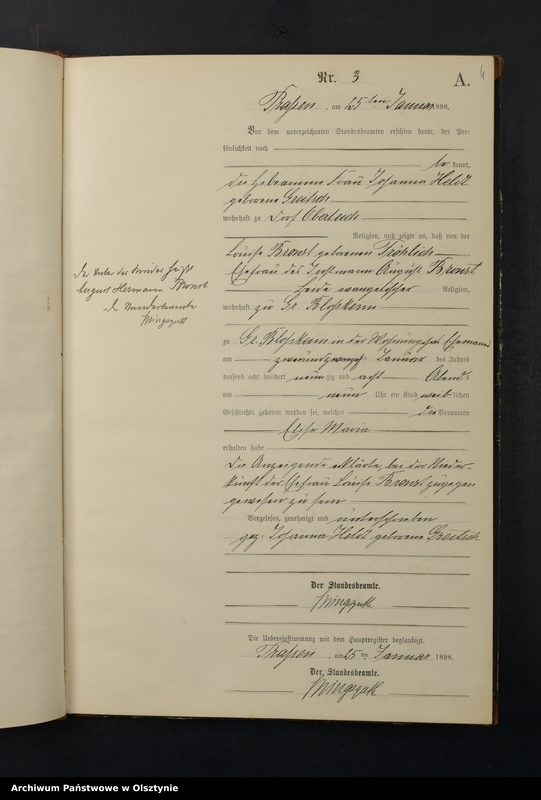 4
Nr. 3
A.
Prassen, am 25ten Januar 1898.
Vor dem unterzeichneten Standesbeamten erschien heute, der Per-
sönlichkeit nach
be kannt,
die Hebeamme Frau Johanna Heldt
geborene Greitsch
wohnhaft zu Dorf
Religion, und zeigte an, daß von der
Louise Bronst geborenen Fröhlich
Ehefrau des Instmann August Bronst
beide evangelischer Religion,
wohnhaft zu Gr. Bloskeim
zu Gr. Bloskeim in der Wohnung ihres Ehemannes
am zweiundzwanzigsten Januar des Jahres
tausend acht hundert neun zig und acht Abends
um neun Uhr ein Kind weib lichen
Geschlechts geboren worden sei, welches die Vornamen
Elise Maria
erhalten habe
Die Anzeigende erklärte, bei der Nieder-
kunft der Ehefrau Louise Bronst zugegen
gewesen zu sein
Vorgelesen, genehmigt und unterschrieben
gez. Johanna Heldt geborene Greitsch
Der Standesbeamte.
Die Uebereinstimmung mit dem Hauptregister beglaubigt.
Prassen, am 25 ten Januar 1898.
Der Standesbeamte.
Der Vater des Kindes heißt
August Hermann Bronst
Der Standesbeamte
Archiwum Państwowe w Olsztynie